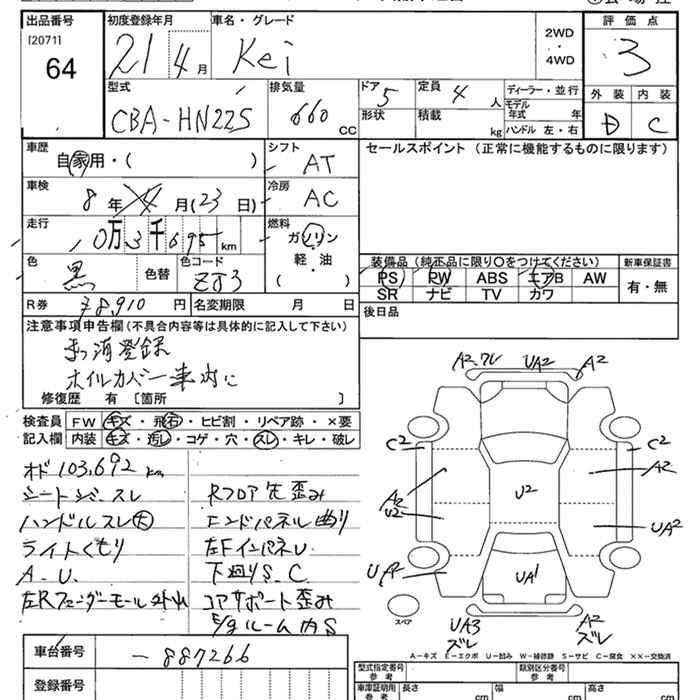 出品番号 初度登録年月 車名・グレード 2WD・4WD 評価点
[2071]
64 21 4月 Kei 3
型式 排気量 ドア 5 定員 4人 ディーラー・並行 外装 内装
CBA-HN22S 660 CC 形状 積載 kg モデル年式 年 ハンドル 左・右 D C
車歴 シフト セールスポイント (正常に機能するものに限ります)
自家用・( ) AT
車検 冷房
8年 4月(23日) AC
走行 燃料
10万3千695km ガソリン
軽・油
( )
色 色替 色コード 装備品 (純正品に限り○をつけてください) 新車保証書
黒 ZJ3 PS PW ABS エアB AW 有・無
SR ナビ TV カワ
R券 ¥8,910円 名変期限 月 日 後日品
注意事項申告欄(不具合内容等は具体的に記入して下さい)
まっ消登録
ホイルカバー車内に
修復歴 有 〔箇所 〕
検査員 FW キズ・飛石・ヒビ割・リペア跡・×要
記入欄 内装 キズ・汚し・コゲ・穴・スレ・キレ・破レ
オド103,692km
シートジミ スレ Rフロア先歪み
ハンドルスレ大 エンドパネル曲り
ライトくもり 左FインパネU
A.U. 下廻りS.C
左Rフェンダーモール外れ コアサポート歪み
E/gルーム内S
A2.ワレ UA2 A2
C2 C2
A2 A2
U2 U2
UA2
UA2 UA1
スペア UA3 ズレ A2 ズレ
A－キズ E－エクボ U－凹み W－補修跡 S－サビ C－腐食 ××－交換済
車台番号 -887266
登録番号
型式指定番号 参考 類別区分番号 参考
車庫証明用 参考 長さ cm 幅 cm 高さ cm